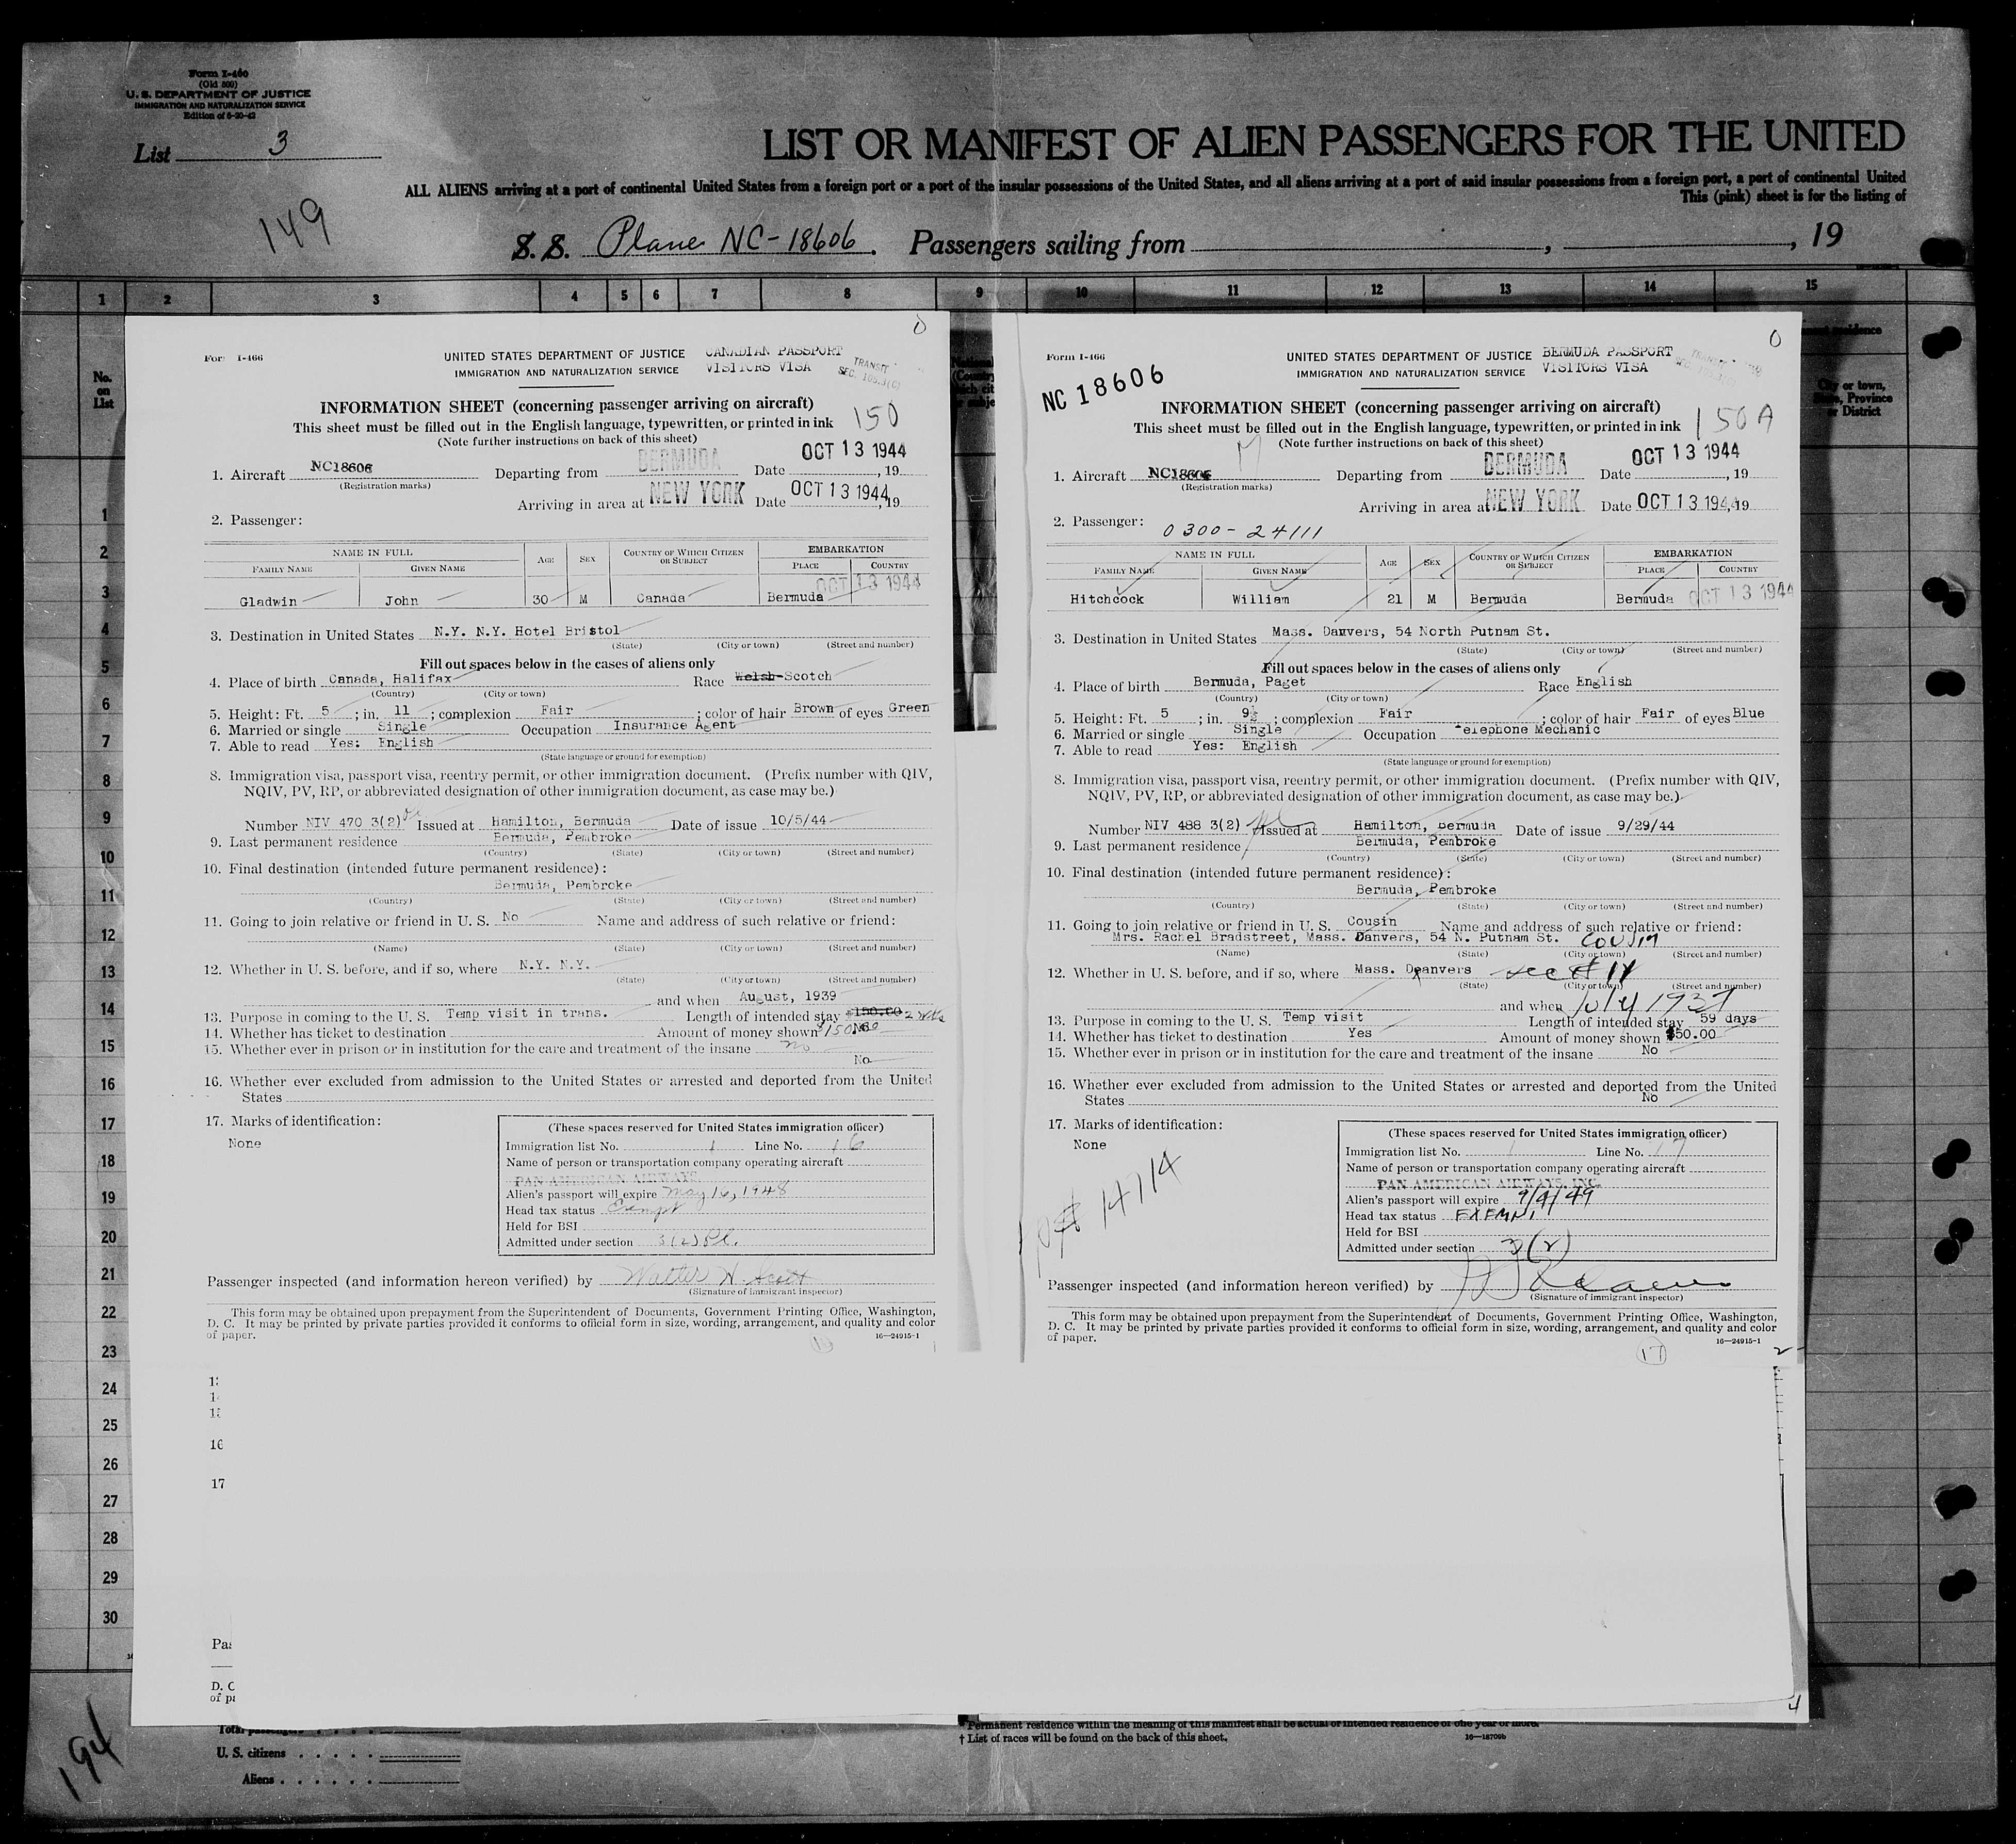 Form I-460
(Old 500)
U. S. DEPARTMENT OF JUSTICE
IMMIGRATION AND NATURALIZATION SERVICE
Edition of 6-30-43
List 3
LIST OR MANIFEST OF ALIEN PASSENGERS FOR THE UNITED
ALL ALIENS arriving at a port of continental United States from a foreign port or a port of the insular possessions of the United States, and all aliens arriving at a port of said insular possessions from a foreign port, a port of continental United
This (pink) sheet is for the listing of
149
S. S. Plane NC-18606. Passengers sailing from , , 19
1 2 3 4 5 6 7 8 9 10 11 12 13 14 15
No.
on
List
City or town,
State, Province
or District
1
2
3
4
5
6
7
8
9
10
11
12
13
14
15
16
17
18
19
20
21
22
23
24
25
26
27
28
29
30
Form I-466
UNITED STATES DEPARTMENT OF JUSTICE CANADIAN PASSPORT
IMMIGRATION AND NATURALIZATION SERVICE VISITORS VISA
TRANSIT
SEC. 105.3(C)
INFORMATION SHEET (concerning passenger arriving on aircraft) 150
This sheet must be filled out in the English language, typewritten, or printed in ink
(Note further instructions on back of this sheet)
1. Aircraft NC18606 Departing from BERMUDA Date OCT 13 1944, 19
(Registration marks)
Arriving in area at NEW YORK Date OCT 13 1944, 19
2. Passenger:
NAME IN FULL AGE SEX COUNTRY OF WHICH CITIZEN OR SUBJECT EMBARKATION
FAMILY NAME GIVEN NAME PLACE COUNTRY
OCT 13 1944
Gladwin John 30 M Canada Bermuda
3. Destination in United States N.Y. N.Y. Hotel Bristol
(State) (City or town) (Street and number)
Fill out spaces below in the cases of aliens only
4. Place of birth Canada, Halifax Race Welsh-Scotch
(Country) (City or town)
5. Height: Ft. 5 ; in. 11 ; complexion Fair ; color of hair Brown of eyes Green
6. Married or single Single Occupation Insurance Agent
7. Able to read Yes: English
(State language or ground for exemption)
8. Immigration visa, passport visa, reentry permit, or other immigration document. (Prefix number with QIV,
NQIV, PV, RP, or abbreviated designation of other immigration document, as case may be.)
Number NIV 470 3(2) Issued at Hamilton, Bermuda Date of issue 10/5/44
9. Last permanent residence Bermuda, Pembroke
(Country) (State) (City or town) (Street and number)
10. Final destination (intended future permanent residence):
Bermuda, Pembroke
(Country) (State) (City or town) (Street and number)
11. Going to join relative or friend in U. S. No Name and address of such relative or friend:
(Name) (State) (City or town) (Street and number)
12. Whether in U. S. before, and if so, where N.Y. N.Y.
(State) (City or town) (Street and number)
and when August, 1939
13. Purpose in coming to the U. S. Temp visit in trans. Length of intended stay $150.00 2 wks
14. Whether has ticket to destination Amount of money shown $150.00
15. Whether ever in prison or in institution for the care and treatment of the insane no
No
16. Whether ever excluded from admission to the United States or arrested and deported from the United
States
17. Marks of identification:
None
(These spaces reserved for United States immigration officer)
Immigration list No. 1 Line No. 16
Name of person or transportation company operating aircraft
PAN AMERICAN AIRWAYS,
Alien's passport will expire May 16, 1948
Head tax status Exempt
Held for BSI
Admitted under section 3(2)
Passenger inspected (and information hereon verified) by Walter H. Scott
(Signature of immigrant inspector)
This form may be obtained upon prepayment from the Superintendent of Documents, Government Printing Office, Washington,
D. C. It may be printed by private parties provided it conforms to official form in size, wording, arrangement, and quality and color
of paper. 16—24915-1
16
17
D. C
Form I-466
NC 18606
UNITED STATES DEPARTMENT OF JUSTICE BERMUDA PASSPORT
IMMIGRATION AND NATURALIZATION SERVICE VISITORS VISA
INFORMATION SHEET (concerning passenger arriving on aircraft) 150 A
This sheet must be filled out in the English language, typewritten, or printed in ink
(Note further instructions on back of this sheet)
M
1. Aircraft NC18606 Departing from BERMUDA Date OCT 13 1944, 19
(Registration marks)
Arriving in area at NEW YORK Date OCT 13 1944, 19
2. Passenger: 0300-24111
NAME IN FULL AGE SEX COUNTRY OF WHICH CITIZEN OR SUBJECT EMBARKATION
FAMILY NAME GIVEN NAME PLACE COUNTRY
Hitchcock William 21 M Bermuda Bermuda OCT 13 1944
3. Destination in United States Mass. Danvers, 54 North Putnam St.
(State) (City or town) (Street and number)
Fill out spaces below in the cases of aliens only
4. Place of birth Bermuda, Paget Race English
(Country) (City or town)
5. Height: Ft. 5 ; in. 9½ ; complexion Fair ; color of hair Fair of eyes Blue
6. Married or single Single Occupation Telephone Mechanic
7. Able to read Yes: English
(State language or ground for exemption)
8. Immigration visa, passport visa, reentry permit, or other immigration document. (Prefix number with QIV,
NQIV, PV, RP, or abbreviated designation of other immigration document, as case may be.)
Number NIV 488 3(2) Issued at Hamilton, Bermuda Date of issue 9/29/44
9. Last permanent residence Bermuda, Pembroke
(Country) (State) (City or town) (Street and number)
10. Final destination (intended future permanent residence):
Bermuda, Pembroke
(Country) (State) (City or town) (Street and number)
11. Going to join relative or friend in U. S. Cousin Name and address of such relative or friend:
Mrs. Rachel Bradstreet, Mass. Danvers, 54 N. Putnam St. cousin
(Name) (State) (City or town) (Street and number)
12. Whether in U. S. before, and if so, where Mass. Danvers see # 11
(State) (City or town) (Street and number)
and when July 1937
13. Purpose in coming to the U. S. Temp visit Length of intended stay 59 days
14. Whether has ticket to destination Yes Amount of money shown $50.00
15. Whether ever in prison or in institution for the care and treatment of the insane No
16. Whether ever excluded from admission to the United States or arrested and deported from the United
States No
17. Marks of identification:
None
14714
(These spaces reserved for United States immigration officer)
Immigration list No. 1 Line No. 17
Name of person or transportation company operating aircraft
PAN AMERICAN AIRWAYS, INC.
Alien's passport will expire 9/4/49
Head tax status EXEMPT
Held for BSI
Admitted under section 3(2)
Passenger inspected (and information hereon verified) by
(Signature of immigrant inspector)
This form may be obtained upon prepayment from the Superintendent of Documents, Government Printing Office, Washington,
D. C. It may be printed by private parties provided it conforms to official form in size, wording, arrangement, and quality and color
of paper. 16—24915-1
17
2
4
194
Total passengers
U. S. citizens
Aliens
* Permanent residence within the meaning of this manifest shall be actual or intended residence of one year or more.
† List of races will be found on the back of this sheet. 16—18709b